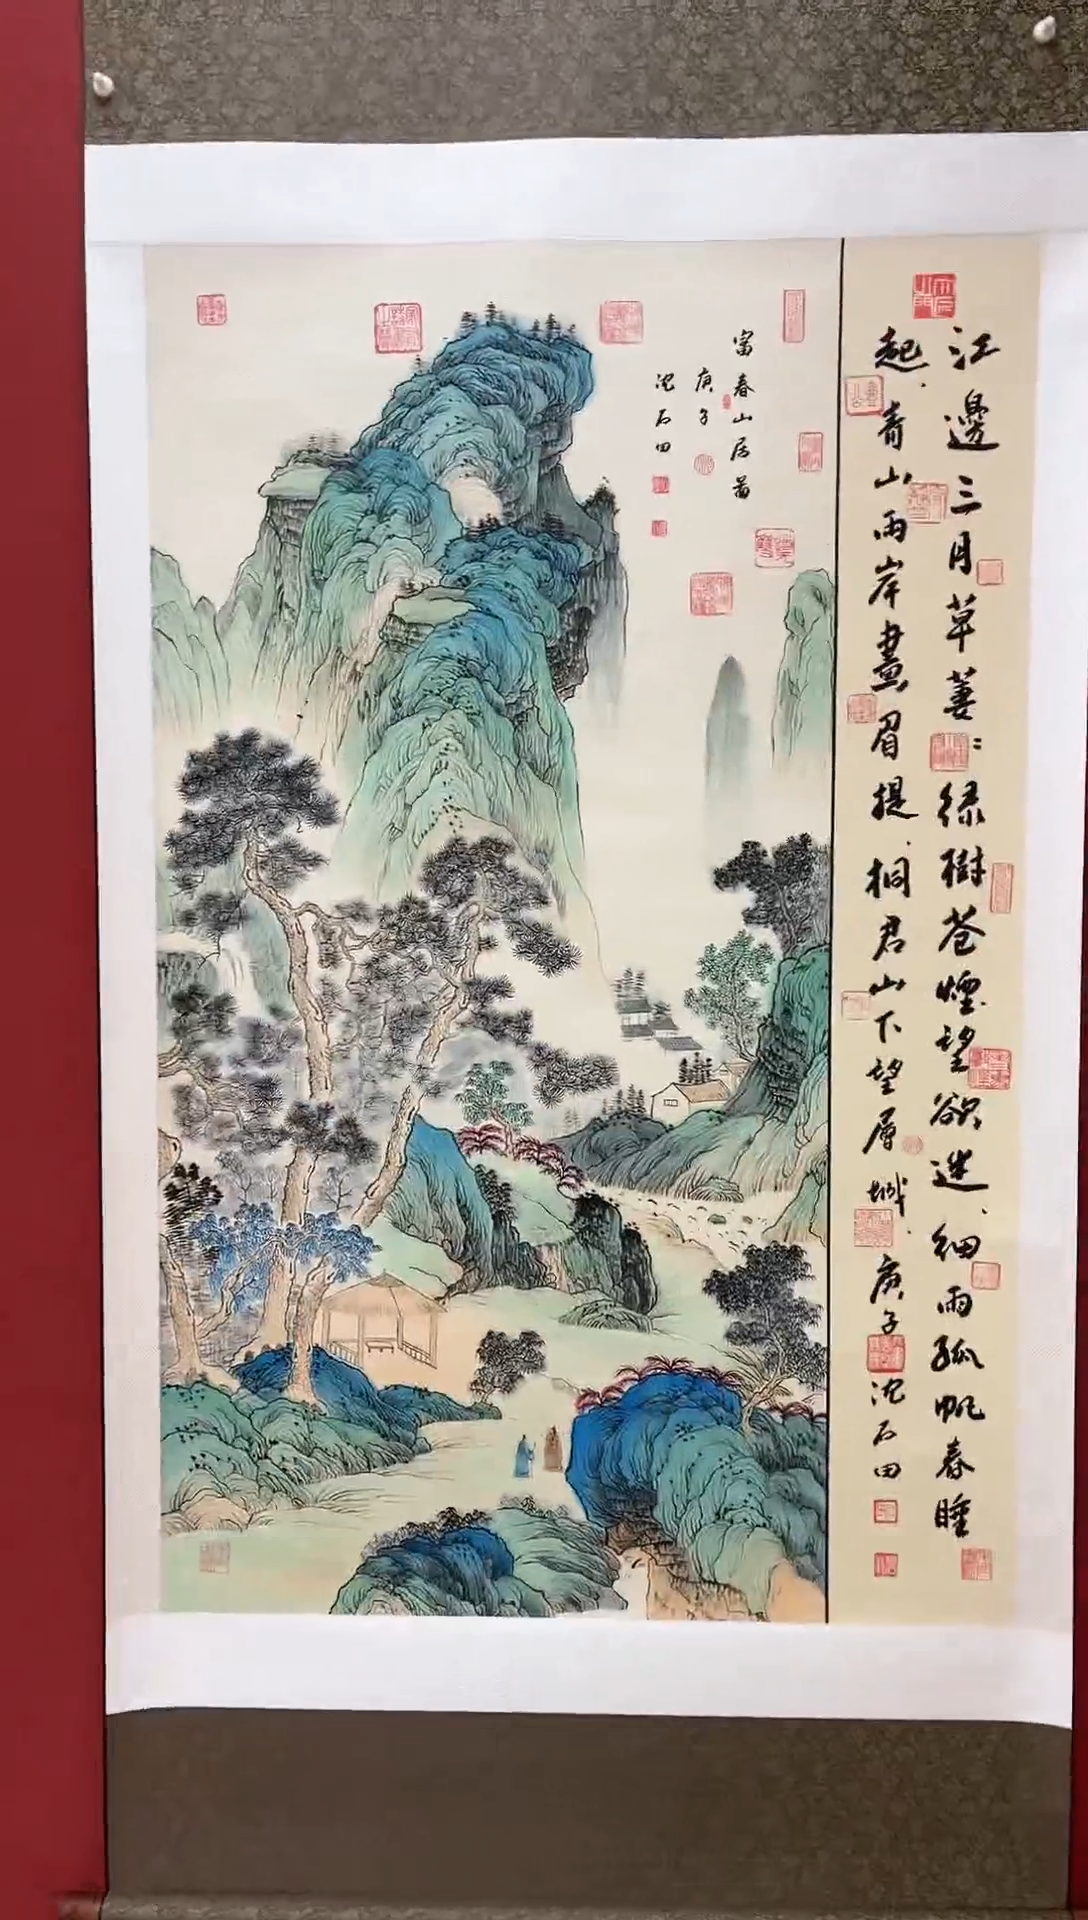 江邊三月草萋〻綠樹苍煙望欲迷、細雨孤帆春睡
起、青山兩岸畫眉提、桐君山下望層城、庚子沈石田
富春山居圖
庚子
沈石田